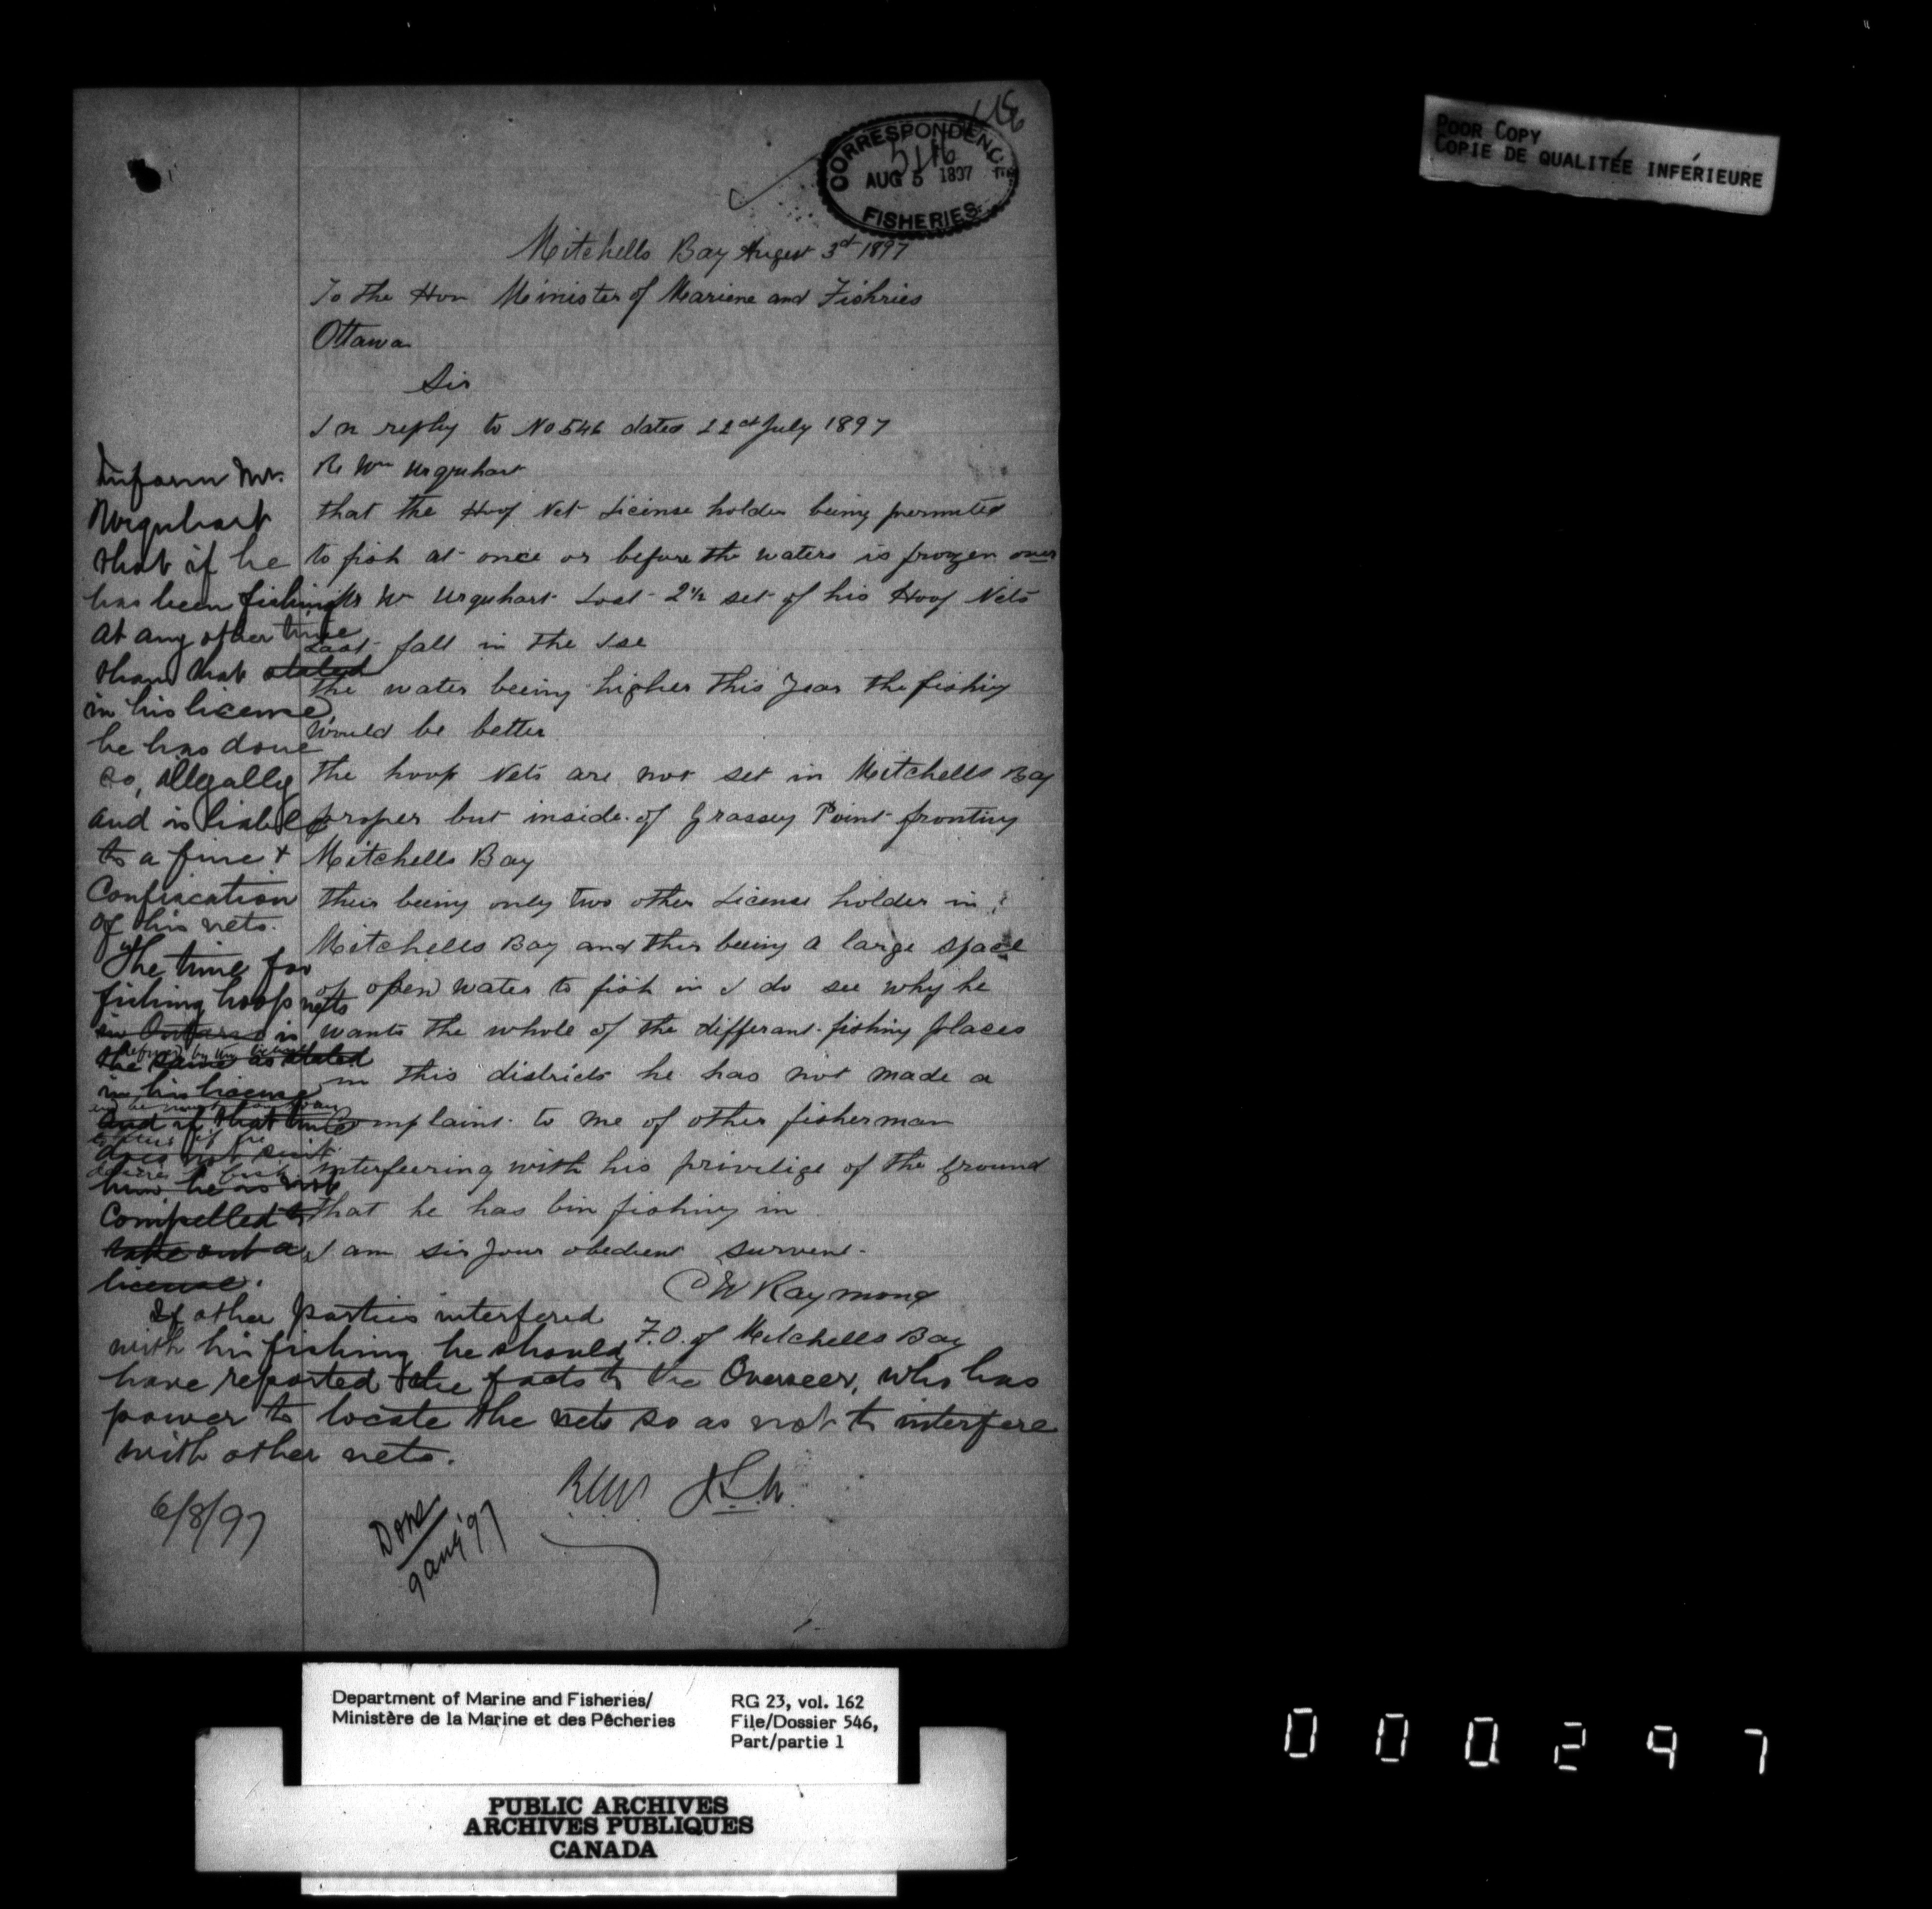 CORRESPONDENCE
AUG 5 1897
FISHERIES
POOR COPY
COPIE DE QUALITÉE INFÉRIEURE
Mitchells Bay August 3rd 1897
To the Hon Minister of Mariene and Fishries
Ottawa
Sir
In reply to No 546 dated 22nd July 1897
Re Wm Urquhart
that the Hoop Net License holder being permited
to fish at once or before the waters is frozen over
Mr Wm Urquhart Lost 2½ set of his Hoop Nets
Last fall in the Ise
the water beeing higher this year the fishing
would be better
the hoop Nets are not set in Mitchells Bay
proper but inside of Grassey Point fronting
Mitchells Bay
their being only two other License holder in
Mitchells Bay and this beeing a large space
of open water to fish in I do see why he
wants the whole of the differant fishing places
in this districts he has not made a
Complaint to me of other fisherman
interfeering with his privelige of the ground
that he has bin fishing in
I am sir your obedient survent
C W Raymond
F.O. of Mitchells Bay
Inform Mr.
Urquhart
that if he
has been fishing
at any other time
than that stated
in his license
he has done
so, illegally
and is liable
to a fine +
Confiscation
of his nets.
The time for
fishing hoop nets
is
the same as stated
in his license
and if that time
does not suit
him he is not
Compelled to
take out a
license.
If other parties interfered
with his fishing he should
have reported the facts to the Overseer, who has
power to locate the nets so as not to interfere
with other nets.
6/8/97
Done
9 aug '97
Department of Marine and Fisheries/
Ministère de la Marine et des Pêcheries
RG 23, vol. 162
File/Dossier 546,
Part/partie 1
PUBLIC ARCHIVES
ARCHIVES PUBLIQUES
CANADA
000297